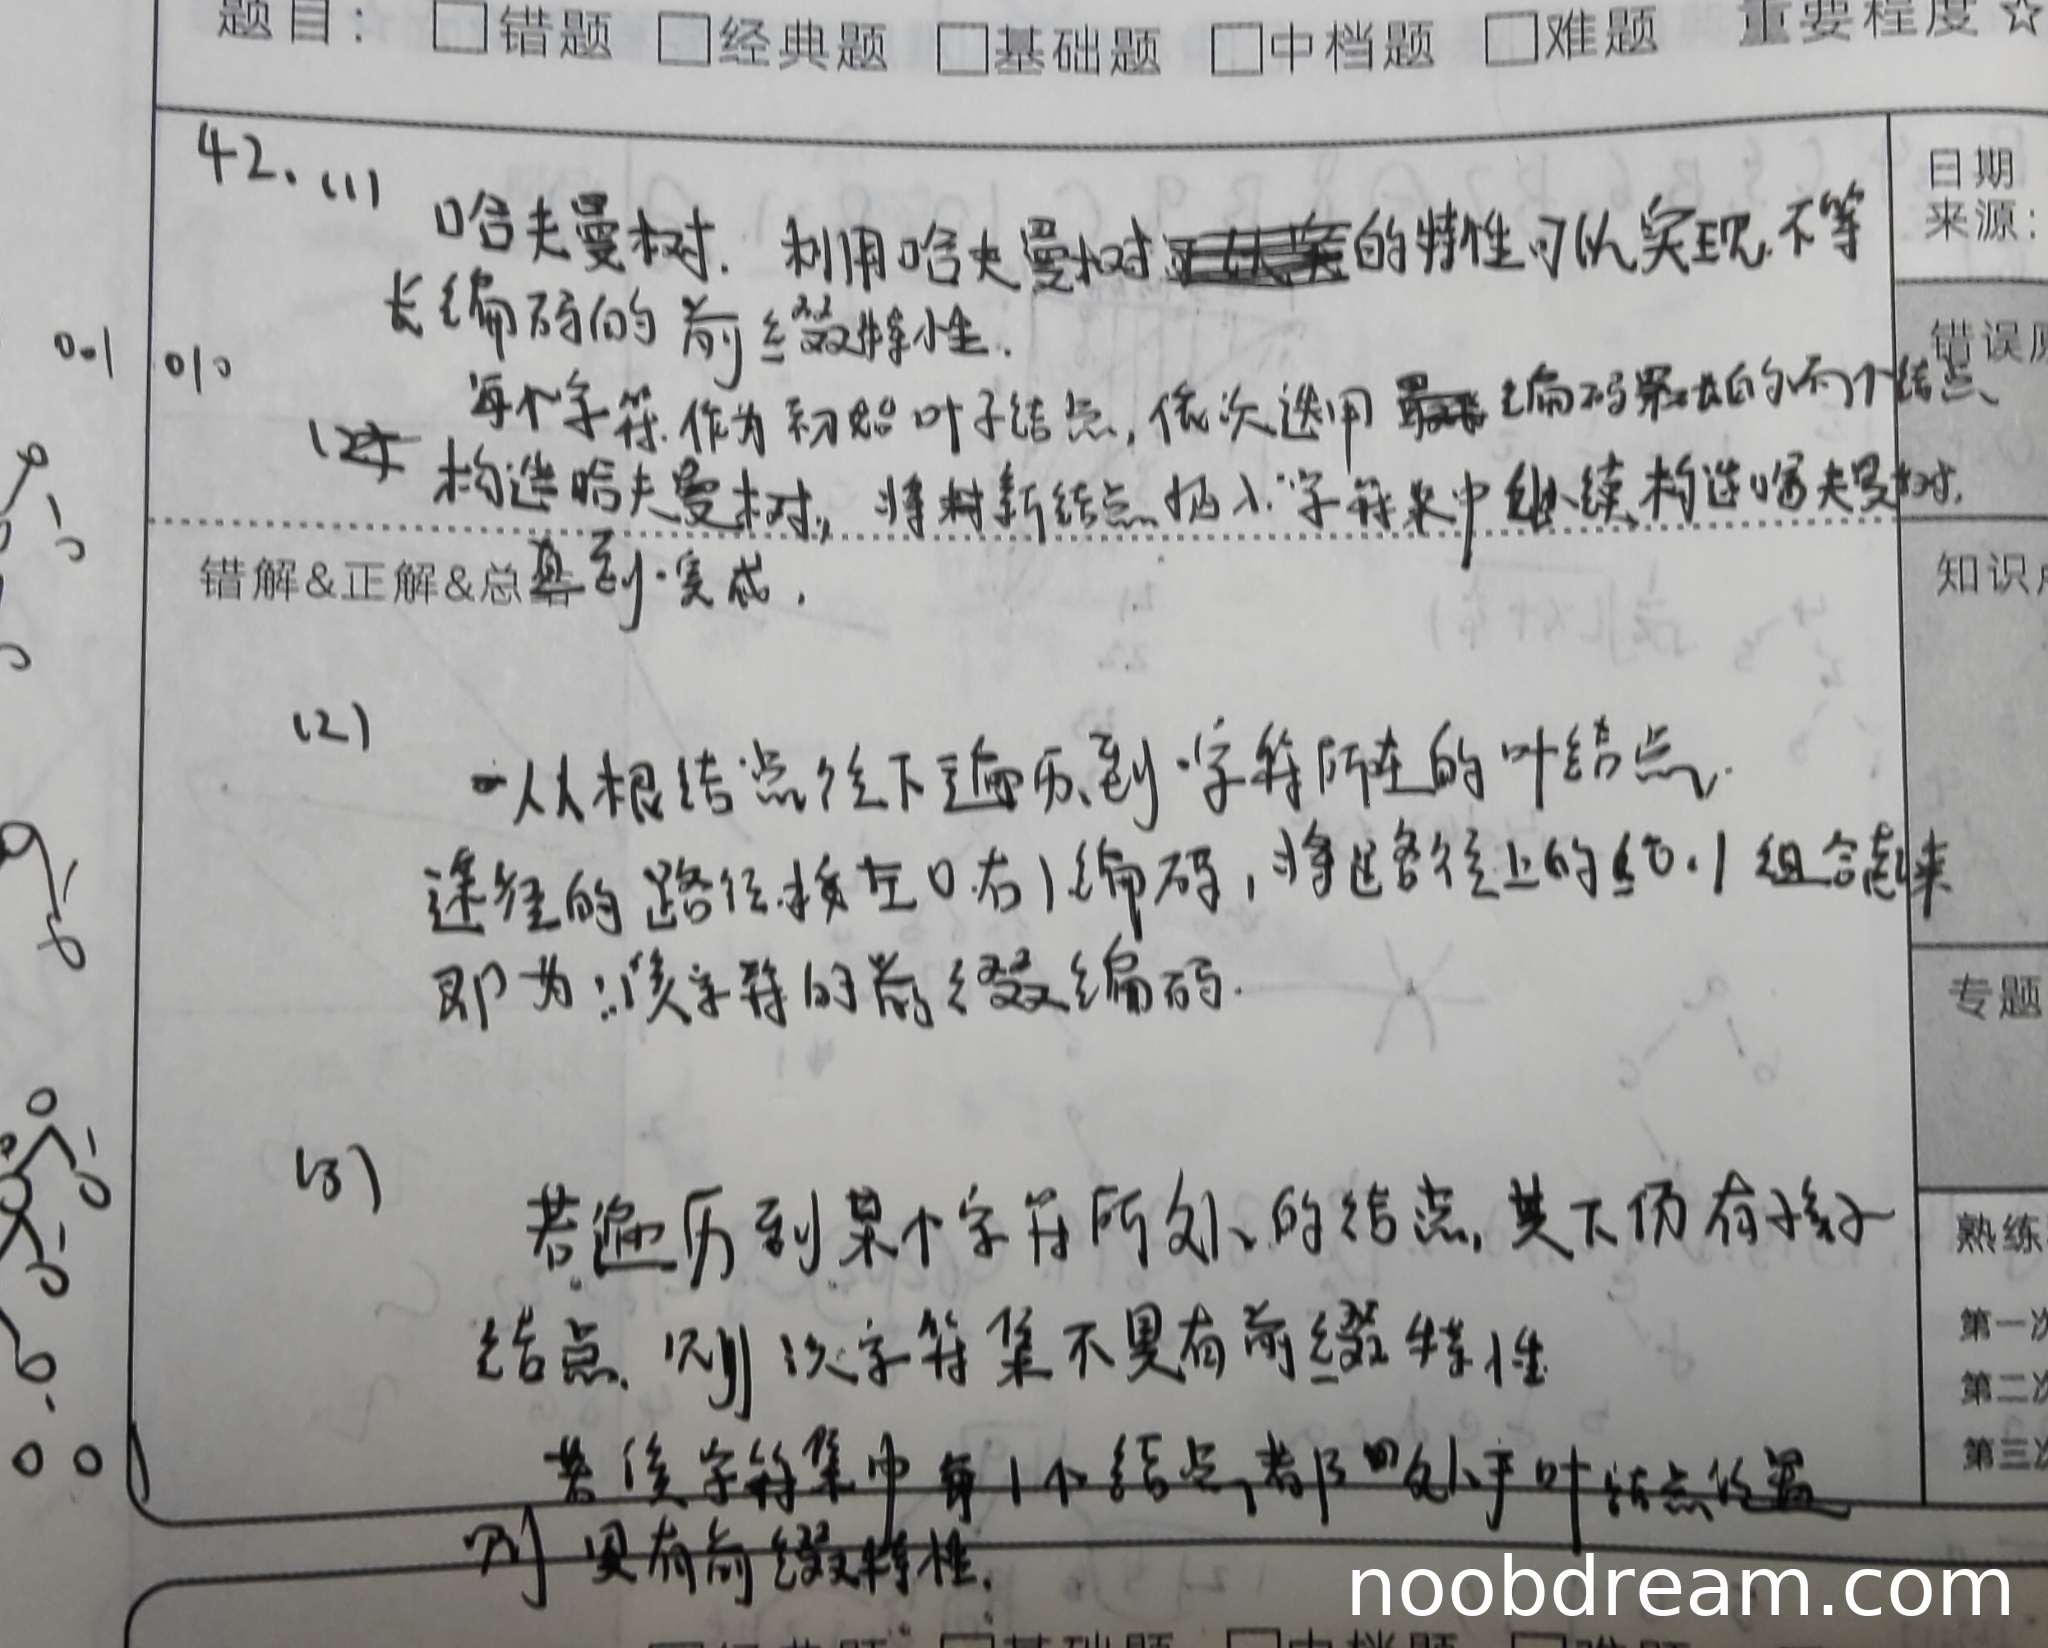 题目： □错题 □经典题 □基础题 □中档题 □难题 重要程度 ☆
日期
来源：
42. (1)
哈夫曼树. 利用哈夫曼树的特性可以实现不等
长编码的前缀特性.
001 010
错误
每个字符作为初始叶子结点, 依次选用编码的两个结点、
(2)
构造哈夫曼树, 将新结点插入字符集中继续构造哈夫曼树,
直到完成.
错解&正解&总结
知识
(2)
从根结点往下遍历到字符所在的叶结点.
途径的路径按左0右1编码, 将路径上的0.1组合起来
即为该字符的前缀编码.
专题
(3)
若遍历到某个字符所处的结点, 其下仍有孩子
结点, 则次字符集不具有前缀特性
若该字符集中每1个结点都处于叶结点位置
则具有前缀特性.
熟练
第一次
第二次
第三次
noobdream.com
□基础题 □中档题 □难题